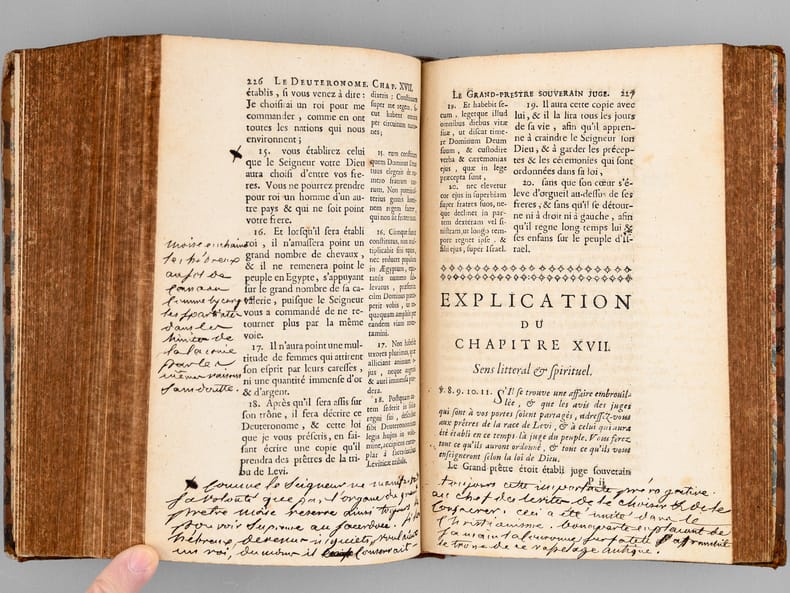 226 LE DEUTERONOME. CHAP. XVII.
établis, si vous venez à dire :
Je choisirai un roi pour me
commander, comme en ont
toutes les nations qui nous
environnent ;
15. vous établirez celui
que le Seigneur votre Dieu
aura choisi d'entre vos fre-
res. Vous ne pourrez prendre
pour roi un homme d'un au-
tre pays & qui ne soit point
votre frere.
16. Et lorsqu'il sera établi
roi, il n'amassera point un
grand nombre de chevaux,
& il ne remenera point le
peuple en Egypte, s'appuyant
sur le grand nombre de sa ca-
valerie, puisque le Seigneur
vous a commandé de ne re-
tourner plus par la même
voie.
17. Il n'aura point une mul-
titude de femmes qui attirent
son esprit par leurs caresses,
ni une quantité immense d'or
& d'argent.
18. Après qu'il sera assis sur
son trône, il fera décrire ce
Deuteronome, & cette loi
que je vous prescris, en fai-
sant écrire une copie qu'il
prendra des prêtres de la tri-
bu de Levi.
dixeris : Constituam
super me regem, si-
cut habent omnes
per circuitum natio-
nes ;
15. eum constitues
quem Dominus Deus
tuus elegerit de nu-
mero fratrum tuo-
rum. Non poteris al-
terius gentis homi-
nem regem facere,
qui non sit frater tuus.
16. Cùmque fuerit
constitutus, non mul-
tiplicabit sibi equos,
nec reducet populum
in Ægyptum, equi-
tatûs numero sub-
levatus, præsertim
cùm Dominus præce-
perit vobis, ut ne-
quaquam ampliùs per
eamdem viam rever-
tamini.
17. Non habebit
uxores plurimas, quæ
alliciant animum
jus, neque argenti
& auri immensa pon-
dera.
18. Postquam au-
tem sederit in solio
regni sui, describet
sibi Deuteronomium
legis hujus in volu-
mine, accipiens exem-
plar à sacerdotibus
Leviticæ tribûs.
les hébreux
au roi de
comme
dans les
par les
mêmes raisons
sans doute.
comme le Seigneur ne manifestait
sa volonté que par l'organe du grand
pretre moïse reserve ainsi toujours
pouvoir supreme au sacerdoce. si les
hébreux devenus inquiets voulaient
un roi, du moins il consacrait
LE GRAND-PRESTRE SOUVERAIN JUGE. 227
19. Et habebit se-
cum, legetque illud
omnibus diebus vitæ
suæ, ut discat time-
re Dominum Deum
suum, & custodire
verba & cæremonias
ejus, quæ in lege
præcepta sunt,
20. nec elevetur
cor ejus in superbiam
super fratres suos, ne-
que declinet in par-
tem dexteram vel si-
nistram, ut longo tem-
pore regnet ipse, &
filii ejus, super Israel.
19. Il aura cette copie avec
lui, & il la lira tous les jours
de sa vie, afin qu'il appren-
ne à craindre le Seigneur son
Dieu, & à garder les précep-
tes & les cérémonies qui sont
ordonnées dans sa loi,
20. sans que son cœur s'é-
leve d'orgueil au-dessus de ses
freres, & sans qu'il se détour-
ne ni à droit ni à gauche, afin
qu'il regne long temps lui &
ses enfans sur le peuple d'Is-
rael.
EXPLICATION
DU
CHAPITRE XVII.
Sens litteral & spirituel.
℣. 8. 9. 10. 11. S'Il se trouve une affaire embrouil-
lée, & que les avis des juges
qui sont à vos portes soient partagés, adressez-vous
aux prêtres de la race de Levi, & à celui qui aura
été établi en ce temps-là juge du peuple. Vous ferez
tout ce qu'ils auront ordonné, & tout ce qu'ils vous
enseigneront selon la loi de Dieu.
Le Grand-prêtre étoit établi juge souverain
P ij
toujours cette importante prérogative.
au chef des levites de le choisir & de le
consacrer. ceci a été imité dans le
christianisme. bonaparte en plaçant de
sa main la couronne sur sa tête affranchit
le trône de ce vasselage antique.